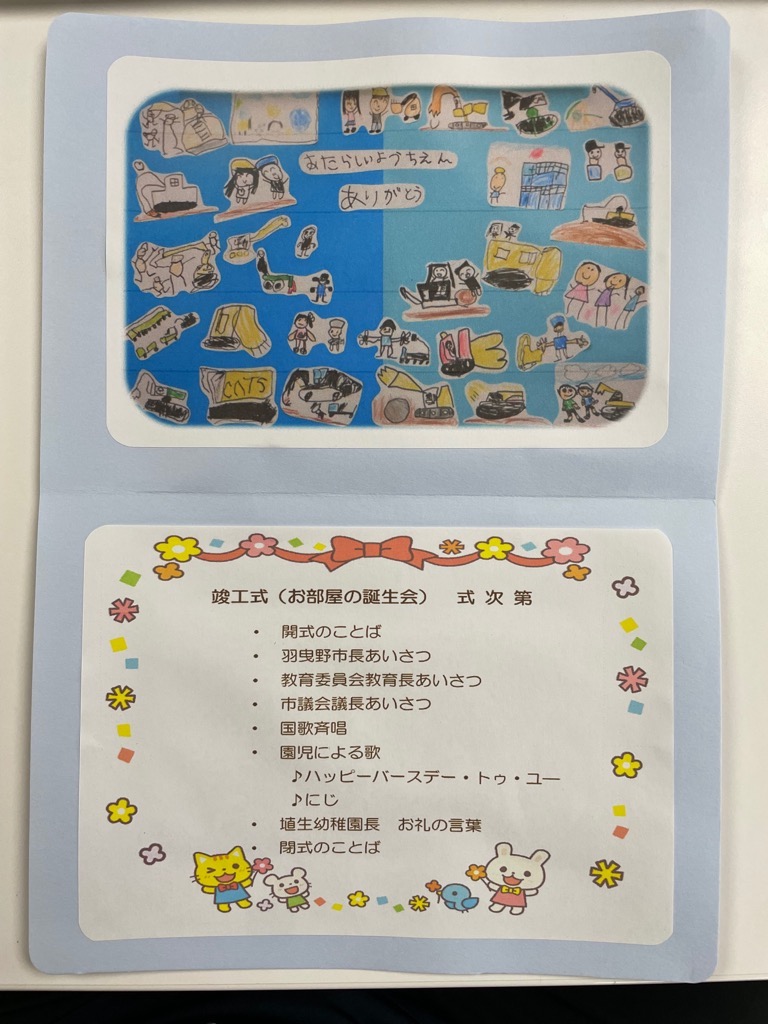 あたらしいようちえん
ありがとう
CATS
竣工式（お部屋の誕生会）　式 次 第
・ 開式のことば
・ 羽曳野市長あいさつ
・ 教育委員会教育長あいさつ
・ 市議会議長あいさつ
・ 国歌斉唱
・ 園児による歌
♪ハッピーバースデー・トゥ・ユー
♪にじ
・ 埴生幼稚園長　お礼の言葉
・ 閉式のことば